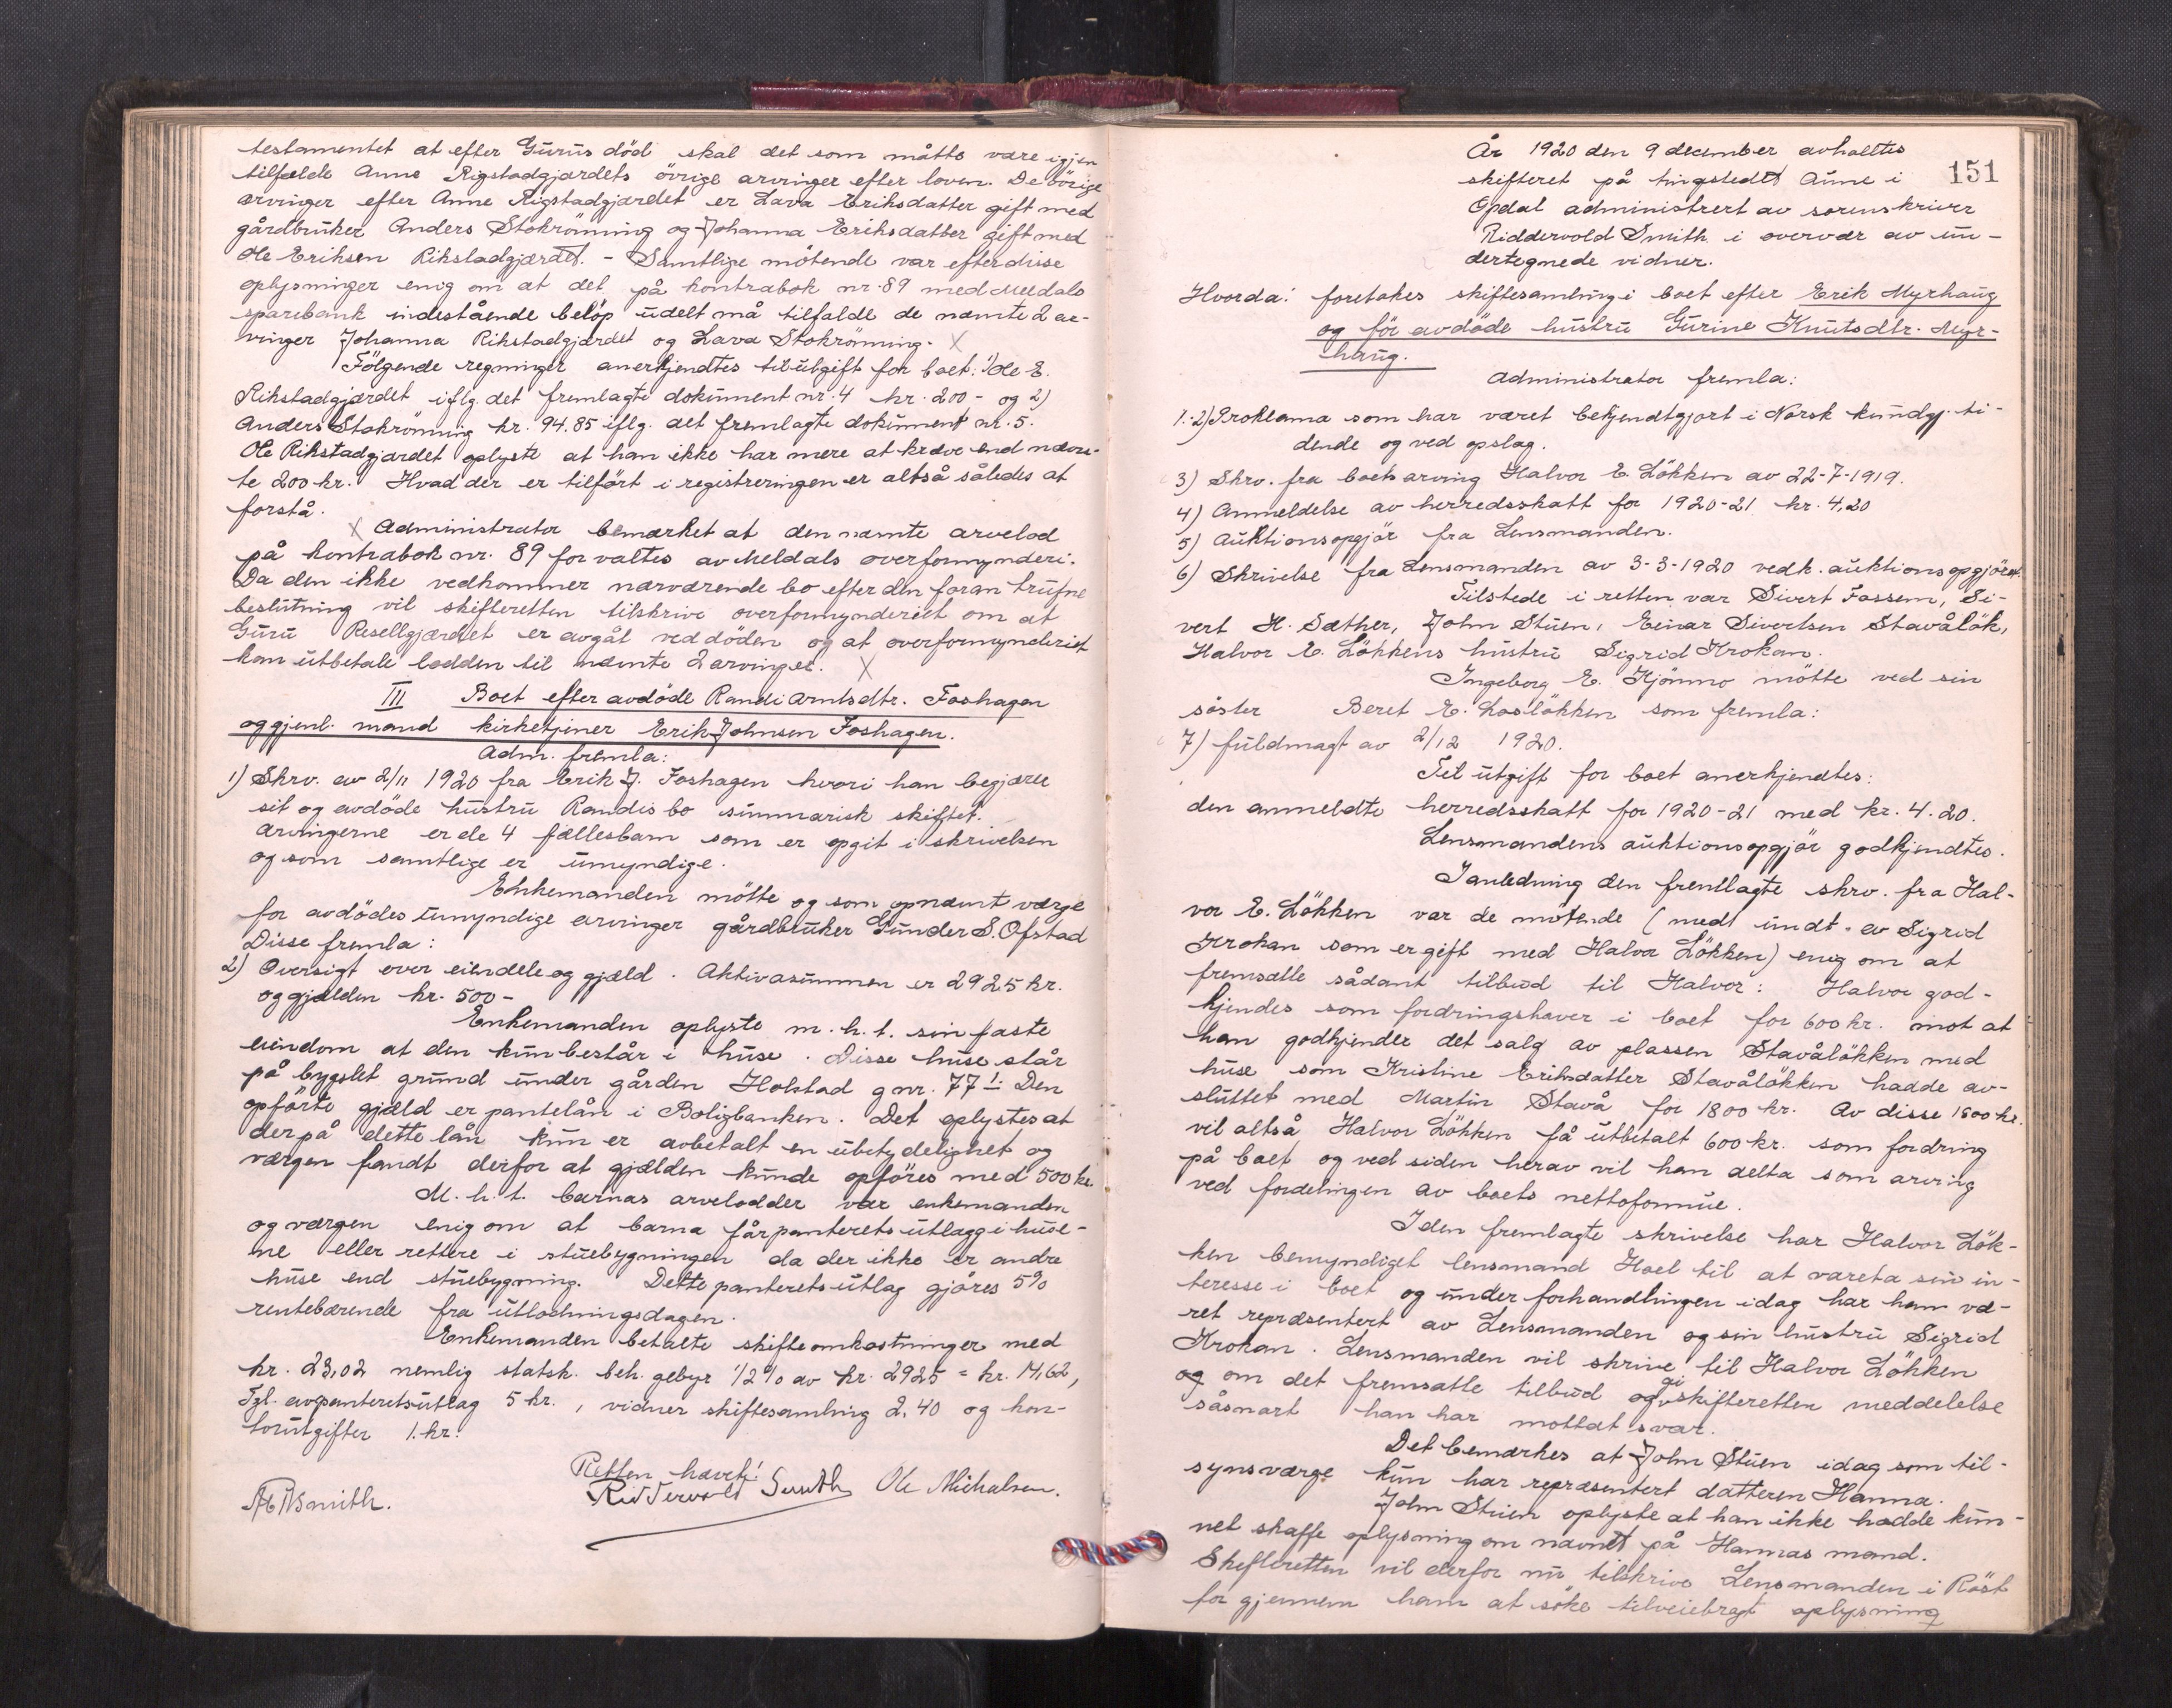 testamentet at efter Gurus död skal det som måtte være igjen
tilfalde Anne Rigstadgjærdets övrige arvinger efter loven. De övrige
arvinger efter Anne Rigstadgjærdet er Lava Eriksdatter gift med
gårdbruker Anders Stokrönning og Johanna Eriksdatter gift med
Ole Eriksen Rikstadgjærdet. - Samtlige mötende var efter disse
oplysninger enig om at det på kontrabok nr. 89 med Meldals
sparebank indestående belöp udelt må tilfalde de nævnte 2 ar-
vinger Johanna Rikstadgjærdet og Lava Stokrönning. X
Fölgende regninger anerkjendtes til utgift for boet: 1) Ole E.
Rikstadgjærdet iflg. det fremlagte dokument nr. 4 kr. 200 - og 2)
Anders Stokrönning kr. 94.85 iflg. det fremlagte dokument nr. 5.
Ole Rikstadgjærdet oplyste at han ikke har mere at kræve end nævn-
te 200 kr. Hvad der er tilfört i registreringen er altså således at
forstå.
X Administrator bemærket at den nævnte arvelod
på kontrabok nr. 89 forvaltes av Meldals overformynderi.
Da den ikke vedkommer nærværende bo efter den foran trufne
beslutning vil skifteretten tilskrive overformynderiet om at
Guru Resellgjærdet er avgåt ved döden og at overformynderiet
kan utbetale lodden til nævnte 2 arvinger. X
III Boet efter avdöde Randi Arntsdtr. Foshagen
og gjenl. mand kirketjener Erik Johnsen Foshagen.
Adm. fremla:
1) Skrv. av 2/11 1920 fra Erik J. Foshagen hvori han begjærer
sit og avdöde hustru Randis bo summarisk skiftet.
Arvingerne er de 4 fællesbarn som er opgit i skrivelsen
og som samtlige er umyndige.
Enkemanden mötte og som opnævnt værge
for avdödes umyndige arvinger gårdbruker Gunder S. Ofstad
Disse fremla:
2) Oversigt over eiendele og gjæld. Aktivasummen er 2925 kr.
og gjælden kr. 500 -
Enkemanden oplyste m. h. t. sin faste
eiendom at den kun består i huse. Disse huse står
på bygslet grund under gården Holstad gnr. 77 1. Den
opförte gjæld er pantelån i Boligbanken. Det oplystes at
der på dette lån kun er avbetalt en ubetydelighet og
værgen fandt derfor at gjælden kunde opföres med 500 kr.
M. h. t. barnas arvelodder var enkemanden
og værgen enig om at barna får panteretsutlægg i huse-
ne eller rettere i stuebygningen da der ikke er andre
huse end stuebygning. Dette panteretsutlag gjöres 5%
rentebærende fra utlodningsdagen.
Enkemanden betalte skifteomkostninger med
kr. 23,02 nemlig statsk. beh. gebyr 1/2% av kr. 2925 = kr. 14,62,
Tgl. av panteretsutlag 5 kr., vidner skiftesamling 2.40 og kon-
torutgifter 1. kr.
Retten hævet!
Riddervold Smith Ole Michalsen.
Smith.
151
År 1920 den 9 december avholdtes
skifteret på tingstedet Aune i
Opdal administrert av sorenskriver
Riddervold Smith i overvær av un-
dertegnede vidner.
Hvorda: foretokes skiftesamling i boet efter Erik Myrhaug
og för avdöde hustru Gurine Knutsdtr. Myr-
haug.
Administrator fremla:
1. 2) Proklama som har været bekjendtgjort i Norsk kundgj. ti-
dende og ved opslag.
3) Skrv. fra boets arving Halvor E. Lökken av 22-7-1919.
4) Anmeldelse av herredsskatt for 1920-21 kr. 4,20
5) Auktionsopgjör fra Lensmanden.
6) Skrivelse fra Lensmanden av 3-3-1920 vedk. auktionsopgjöret.
Tilstede i retten var Sivert Fossem, Si-
vert H. Sæther, John Stuen, Einar Sivertsen Stavålök,
Halvor E. Lökkens hustru Sigrid Krokan.
Ingeborg E. Kjönnø mötte ved sin
söster Beret E. Loslökken som fremla:
7) fuldmagt av 2/12 1920.
Til utgift for boet anerkjendtes:
den anmeldte herredsskatt for 1920-21 med kr. 4.20.
Lensmandens auktionsopgjör godkjendtes.
I anledning den fremlagte skrv. fra Hal-
vor E. Lökken var de mötende (med undt. av Sigrid
Krokan som er gift med Halvor Lökken) enig om at
fremsætte sådant tilbud til Halvor: Halvor god-
kjendes som fordringshaver i boet for 600 kr. mot at
han godkjender det salg av plassen Stavålökken med
huse som Kristine Eriksdatter Stavålökken hadde av-
sluttet med Martin Stavå for 1800 kr. Av disse 1800 kr.
vil altså Halvor Lökken få utbetalt 600 kr. som fordring
på boet og ved siden herav vil han delta som arving
ved fordelingen av boets nettoformue.
I den fremlagte skrivelse har Halvor Lök-
ken bemyndiget lensmand Hoel til at vareta sin in-
teresse i boet og under forhandlingen idag har han væ-
ret repræsentert av Lensmanden og sin hustru Sigrid
Krokan. Lensmanden vil skrive til Halvor Lökken
og om det fremsatte tilbud og gi skifteretten meddelelse
såsnart han har mottat svar.
Det bemærkes at John Stuen idag som til-
synsværge kun har repræsentert datteren Hanna.
John Stuen oplyste at han ikke hadde kun-
net skaffe oplysning om navnet på Hannas mand.
Skifteretten vil derfor nu tilskrive Lensmanden i Röst
for gjennem ham at söke tilveiebragt oplysning